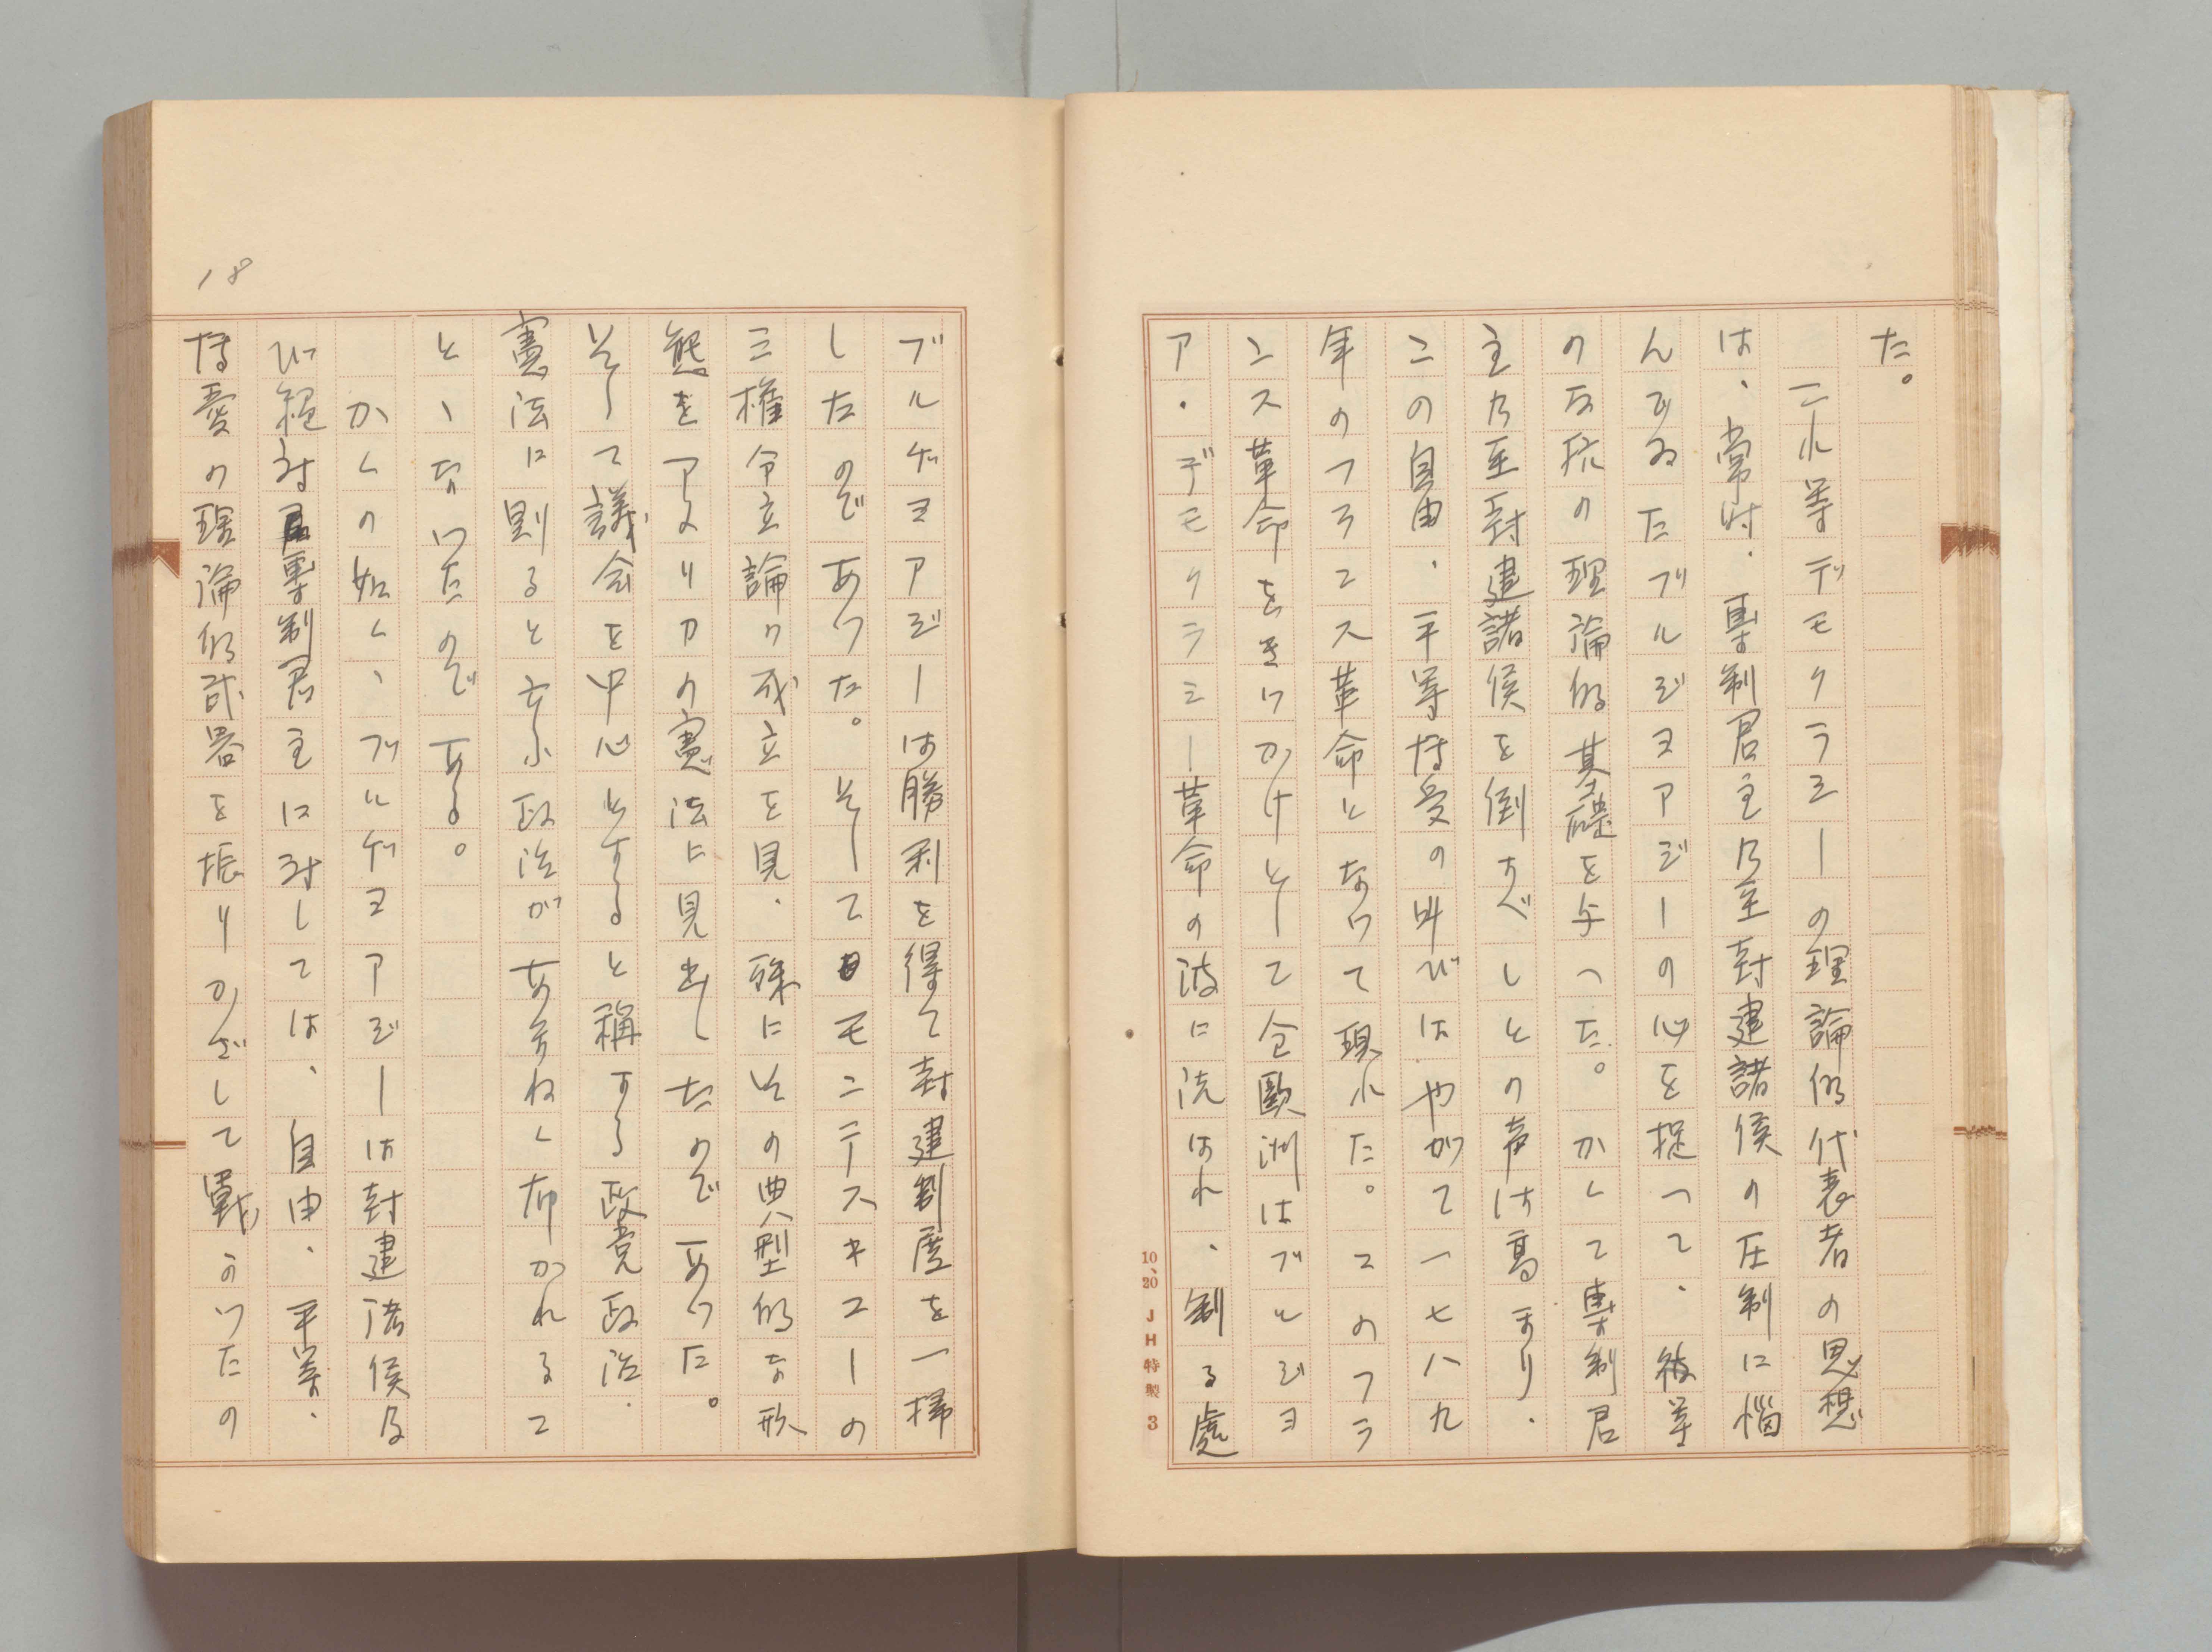 た。
これ等デモクラシーの理論的代表者の思想
は、当時、専制君主乃至封建諸侯の圧制に悩
んでゐたブルジヨアジーの心を捉へて、彼等
の反抗の理論的基礎を与へた。かくて専制君
主乃至封建諸侯を倒すべしとの声は高まり、
この自由、平等博愛の叫びはやがて一七八九
年のフランス革命となつて現れた。このフラ
ンス革命をきつかけとして全歐洲はブルジヨ
ア・デモクラシー革命の波に洗はれ、到る處
10、20 JH特製 3
ブルヂヨアジーは勝利を得て封建制度を一掃
したのであつた。そしてモンテスキユーの
三権分立論の成立を見、殊にその典型的な形
態をアメリカの憲法に見出したのであつた。
そして議会を中心とすると称する政党政治、
憲法に則ると云ふ政治があまねく布かれるこ
とゝなつたのである。
かくの如く、ブルヂヨアジーは封建諸侯及
び絶対専制君主に対しては、自由、平等、
博愛の理論的武器を振りかざして戰かつたの
18